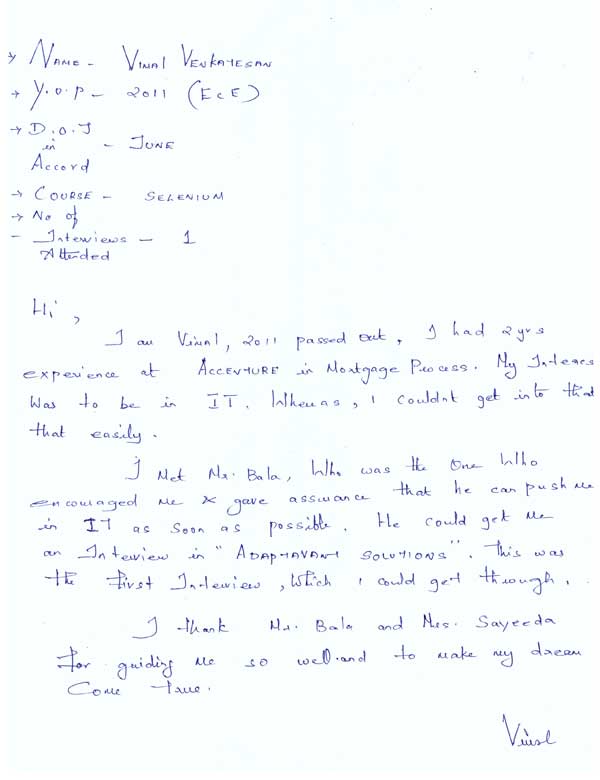 → NAME - VIMAL VENKATESAN
→ Y.O.P - 2011 (ECE)
→ D.O.J
in - JUNE
Accord
→ COURSE - SELENIUM
→ No of
- Interviews - 1
Attended
Hi,
I am Vimal, 2011 passed out, I had 2yrs
experience at ACCENTURE in Mortgage Process. My Interes
was to be in IT. Whereas, I couldnt get into that
that easily.
I Met Mr. Bala, Who was the One Who
encouraged Me & gave assurance that he can push me
in IT as soon as possible. He could get Me
an Interview in "ADAPTAVANT SOLUTIONS". This was
the First Interview, Which I could get through.
I thank Mr. Bala and Mrs. Sayeeda
For guiding Me so well.and to make my dream
Come True.
Vimal